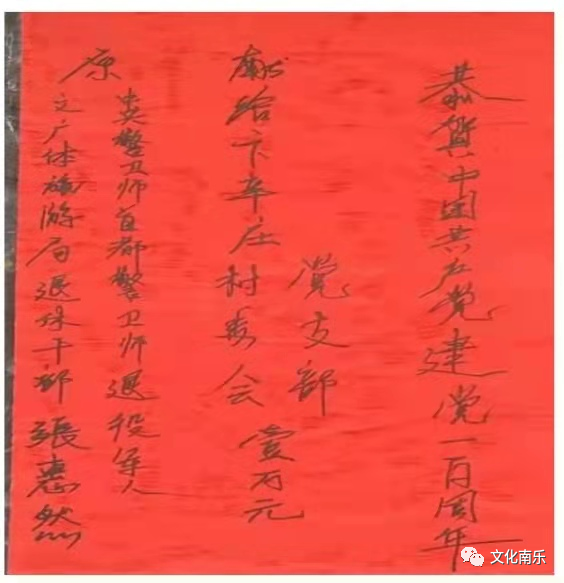 恭贺中国共产党建党一百周年
献给卞辛庄村委会 党支部 壹万元
原 中央警卫师首都警卫师退役军人
文广体旅游局退休干部 張惠然
文化南乐